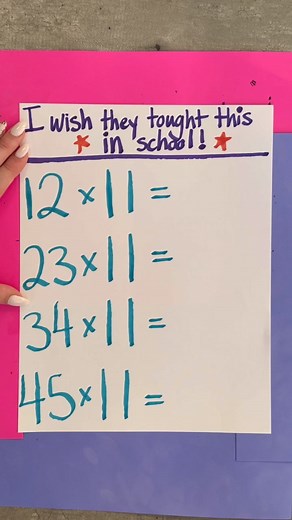 I wish they tought this
in school!
12 × 11 =
23 × 11 =
34 × 11 =
45 × 11 =